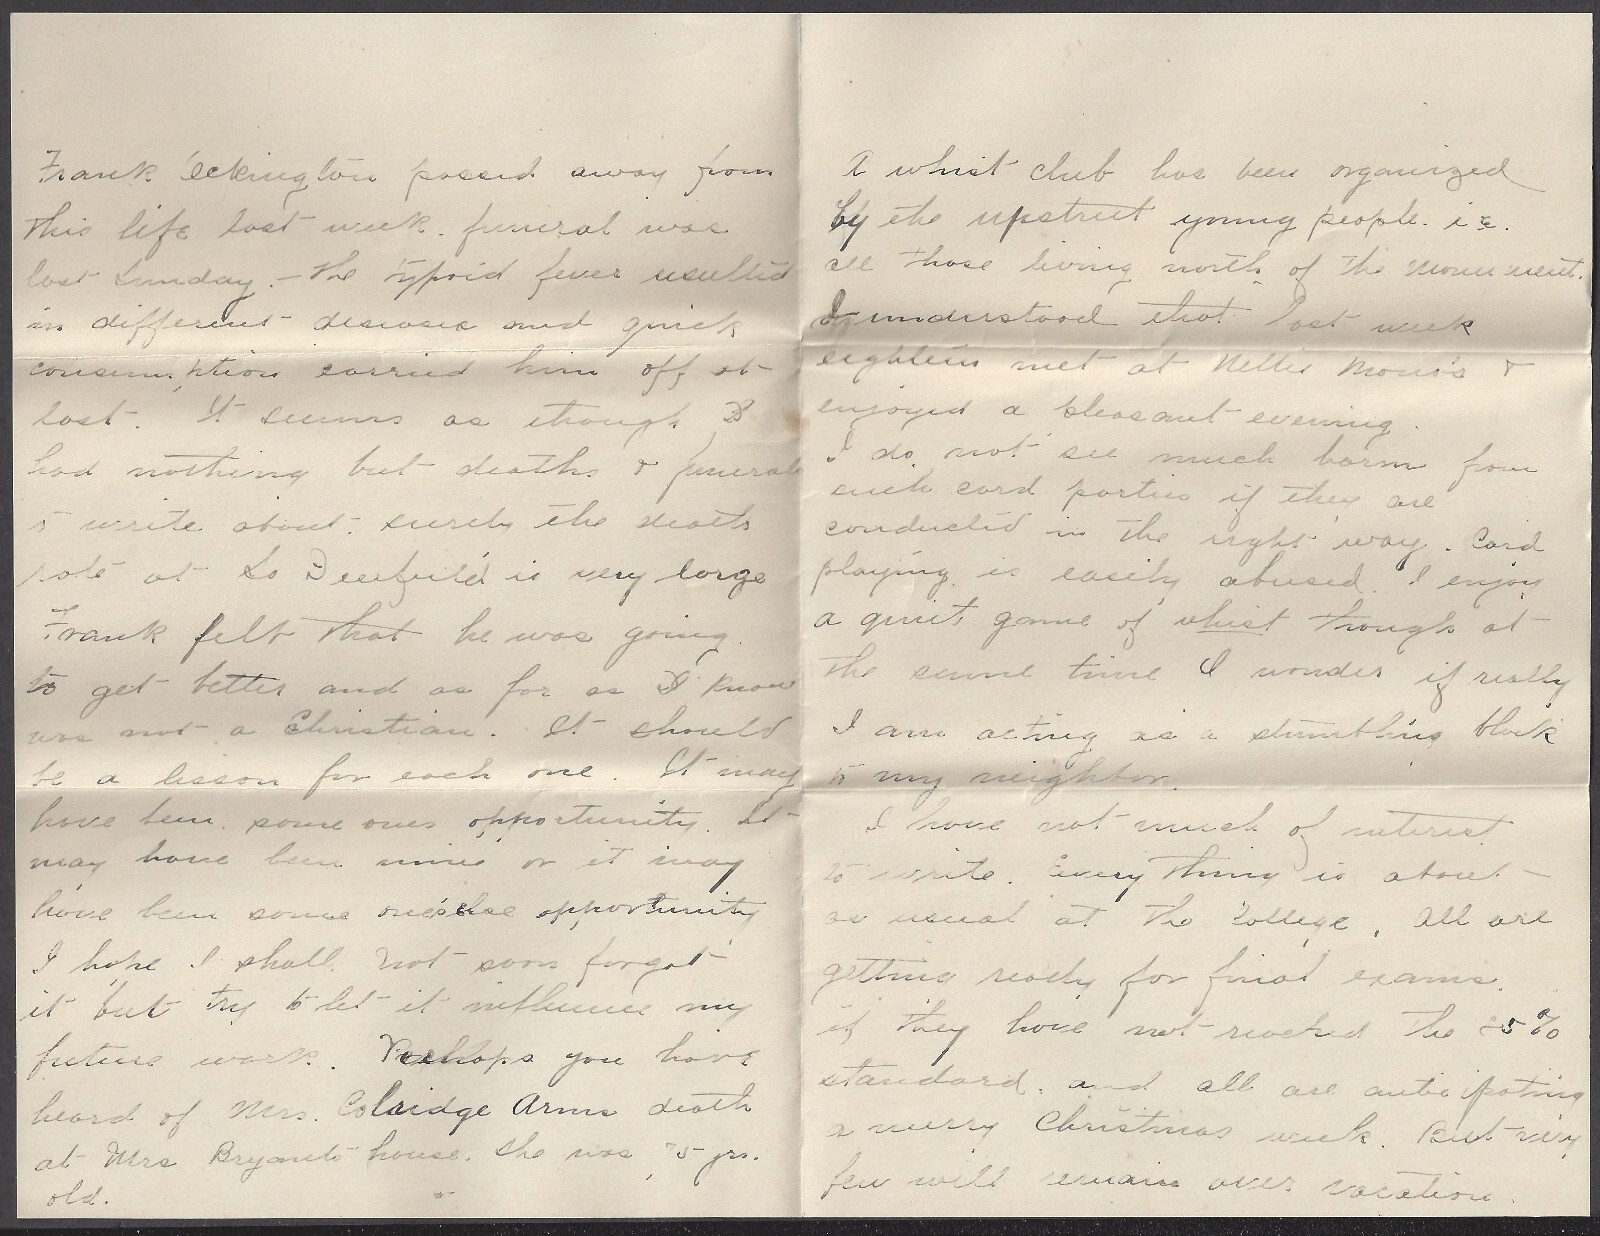 Frank Eckington passed away from
this life last week. funeral was
last Sunday. - the typoid fever resulted
in different diseases and quick
consumption carried him off at
last. It seems as though I
had nothing but deaths & funerals
to write about. surely the death
rate at So Deerfield is very large
Frank felt that he was going
to get better and as far as I know
was not a Christian. It should
be a lesson for each one. It may
have been some ones opportunity. It
may have been mine or it may
have been some one's else opportunity
I hope I shall not soon forget
it but try to let it influence my
future work. Perhaps you have
heard of Mrs. Colridge Arms death
at Mrs Bryants house. She was 75 yrs.
old.
A whist club has been organized
by the upstreet young people. i.e.
all those living north of the monument.
I understood that last week
eighteen met at Nellie &
enjoyed a pleasant evening.
I do not see much harm from
such card parties if they are
conducted in the right way. Card
playing is easily abused. I enjoy
a quiet game of whist though at
the same time I wonder if really
I am acting as a stumbling block
to my neighbor.
I have not much of interest
to write. Every thing is about
as usual at the College, All are
getting ready for final exams.
if they have not reached the 85%
standard. and all are anticipating
a merry Christmas week. But very
few will remain over vacation.